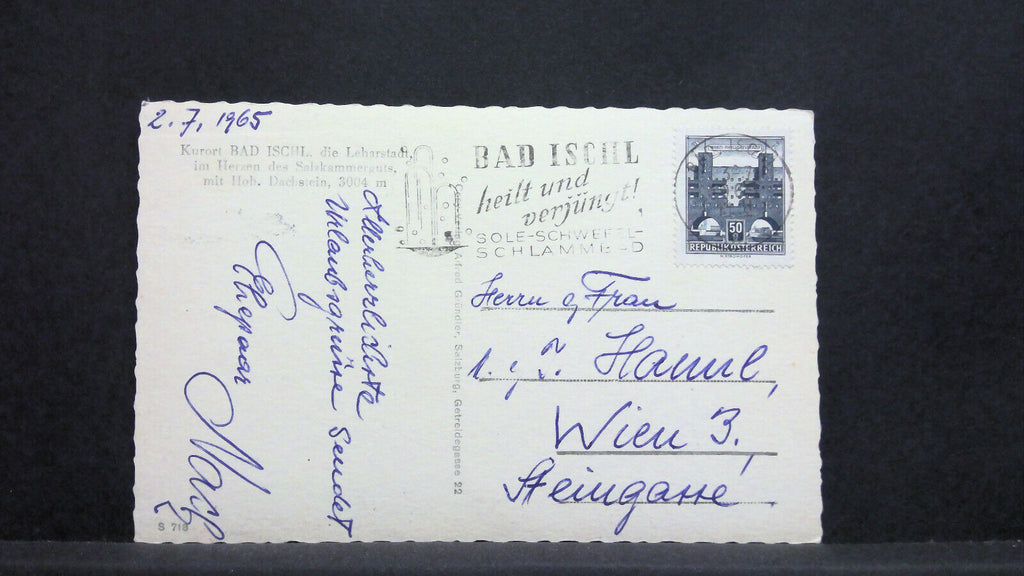 2. 7. 1965
Kurort BAD ISCHL, die Leharstadt,
im Herzen des Salzkammerguts,
mit Hoh. Dachstein, 3004 m
Allerherrlichste
Urlaubsgrüsse sendet
Ehepaar
S 718
Alfred Gründler, Salzburg, Getreidegasse 22
BAD ISCHL
heilt und
verjüngt!
SOLE-SCHWEFEL-
SCHLAMM
50
REPUBLIK ÖSTERREICH
Herrn u Frau
Wien 3.
Steingasse